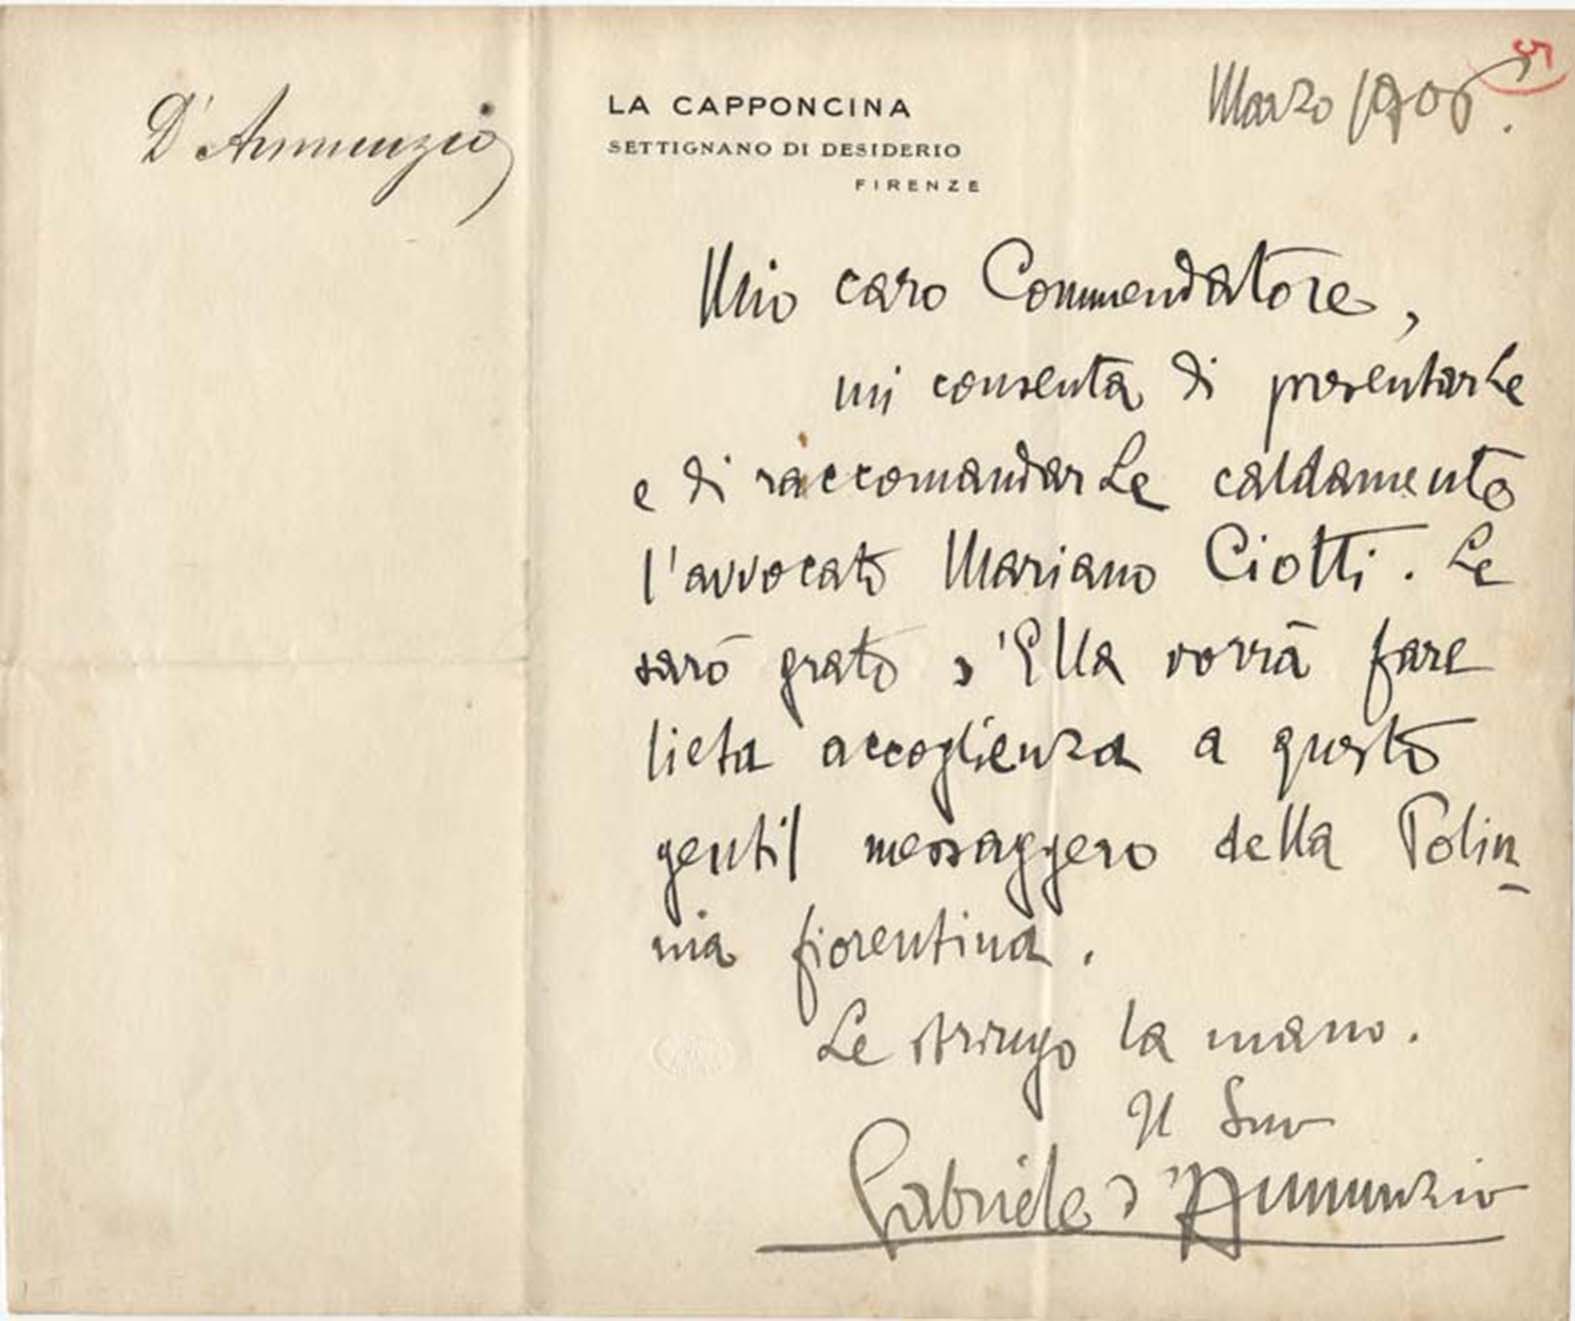 D'Annunzio
LA CAPPONCINA
SETTIGNANO DI DESIDERIO
FIRENZE
Marzo 1906.
5
Mio caro Commendatore,
mi consenta di presentarLe
e di raccomandarLe caldamente
l'avvocato Mariano Ciotti. Le
sarò grato s'Ella vorrà fare
lieta accoglienza a questo
gentil messaggero della Polin-
nia fiorentina.
Le stringo la mano.
Il Suo
Gabriele d'Annunzio